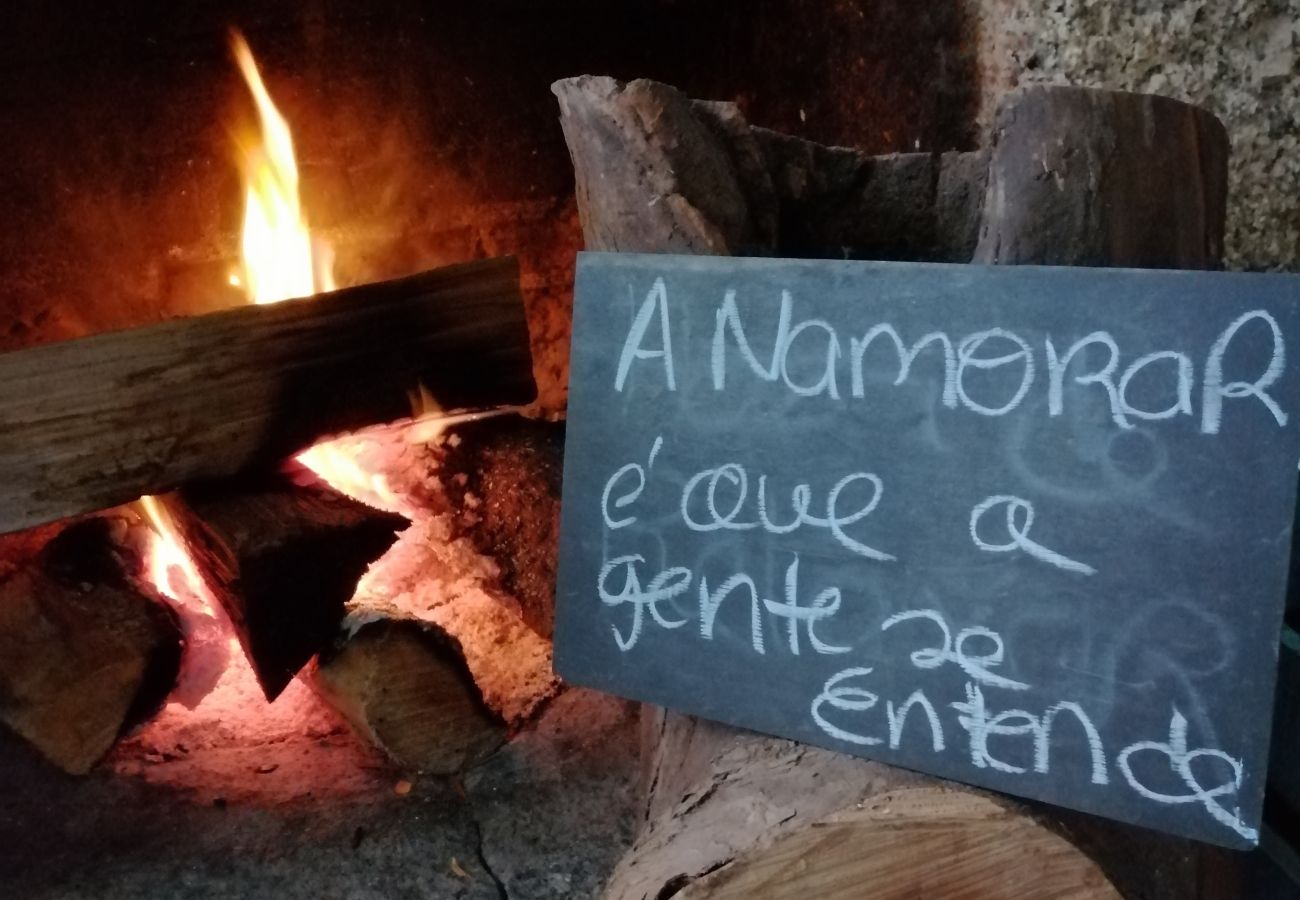 A NamoRaR
é que a
gente se
entende